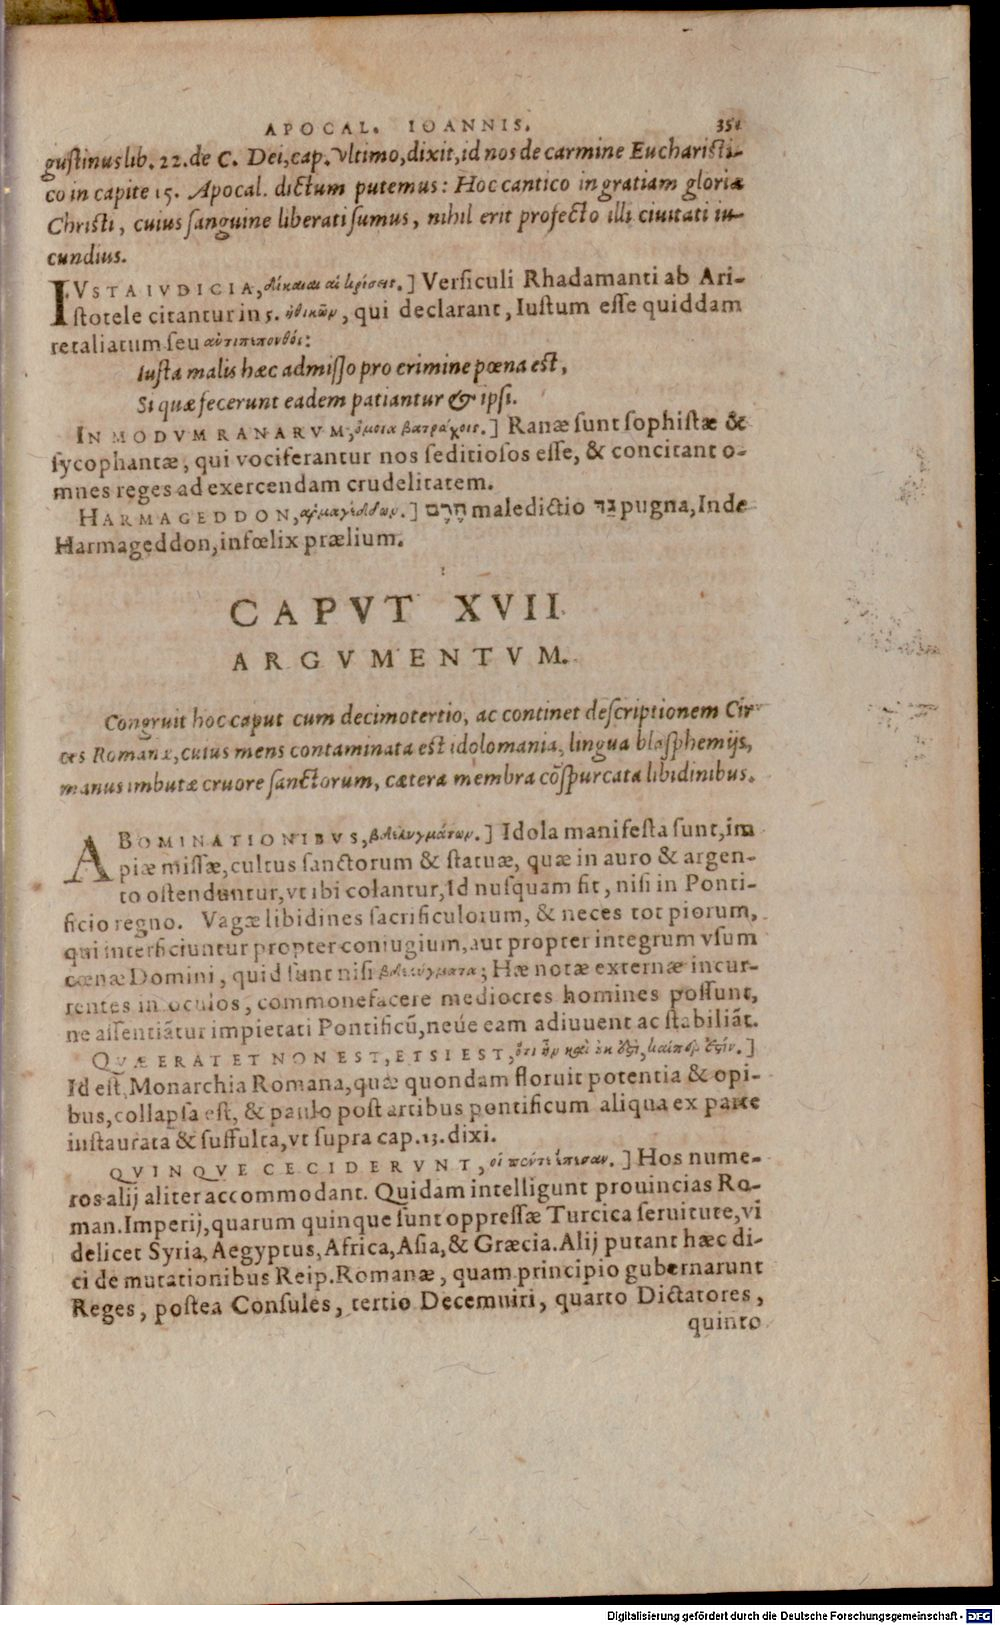 APOCAL. IOANNIS. 351
gustinus lib. 22. de C. Dei, cap. vltimo, dixit, id nos de carmine Eucharisti-
co in capite 15. Apocal. dictum putemus: Hoc cantico in gratiam gloriæ
Christi, cuius sanguine liberati sumus, nihil erit profecto illi ciuitati iu-
cundius.
IVSTA IVDICIA, δίκαιαι αἱ κρίσεις.] Versiculi Rhadamanti ab Ari-
stotele citantur in 5. ἠθικῶν, qui declarant, Iustum esse quiddam
retaliatum seu ἀντιπεπονθός:
Iusta malis hæc admisso pro crimine pœna est,
Si quæ fecerunt eadem patiantur & ipsi.
IN MODVM RANARVM, ὅμοια βατράχοις.] Ranæ sunt sophistæ &
sycophantæ, qui vociferantur nos seditiosos esse, & concitant o-
mnes reges ad exercendam crudelitatem.
HARMAGEDDON, ἁρμαγεδδων.] חֵרֶם maledictio גד pugna, Inde
Harmageddon, infœlix prælium.
CAPVT XVII.
ARGVMENTVM.
Congruit hoc caput cum decimotertio, ac continet descriptionem Cir-
ces Romanæ, cuius mens contaminata est idolomania, lingua blasphemijs,
manus imbutæ cruore sanctorum, cætera membra cōspurcata libidinibus.
ABOMINATIONIBVS, βδελυγμάτων.] Idola manifesta sunt, im
piæ missæ, cultus sanctorum & statuæ, quæ in auro & argen-
to ostenduntur, vt ibi colantur, Id nusquam fit, nisi in Ponti-
ficio regno. Vagæ libidines sacrificulorum, & neces tot piorum,
qui interficiuntur propter coniugium, aut propter integrum vsum
cœnæ Domini, quid sunt nisi βδελύγματα; Hæ notæ externæ incur-
rentes in oculos, commonefacere mediocres homines possunt,
ne assentiātur impietati Pontificū, neúe eam adiuuent ac stabiliāt.
QVÆ ERAT ET NON EST, ETSI EST, ὅτι ἦν καὶ οὐκ ἔστι, καίπερ ἔστιν.]
Id est, Monarchia Romana, quæ quondam floruit potentia & opi-
bus, collapsa est, & paulo post artibus pontificum aliqua ex parte
instaurata & suffulta, vt supra cap. 13. dixi.
QVINQVE CECIDERVNT, οἱ πέντε ἔπεσαν.] Hos nume-
ros alij aliter accommodant. Quidam intelligunt prouincias Ro-
man. Imperij, quarum quinque sunt oppressæ Turcica seruitute, vi
delicet Syria, Aegyptus, Africa, Asia, & Græcia. Alij putant hæc di-
ci de mutationibus Reip. Romanæ, quam principio gubernarunt
Reges, postea Consules, tertio Decemuiri, quarto Dictatores,
quinto
Digitalisierung gefördert durch die Deutsche Forschungsgemeinschaft - DFG